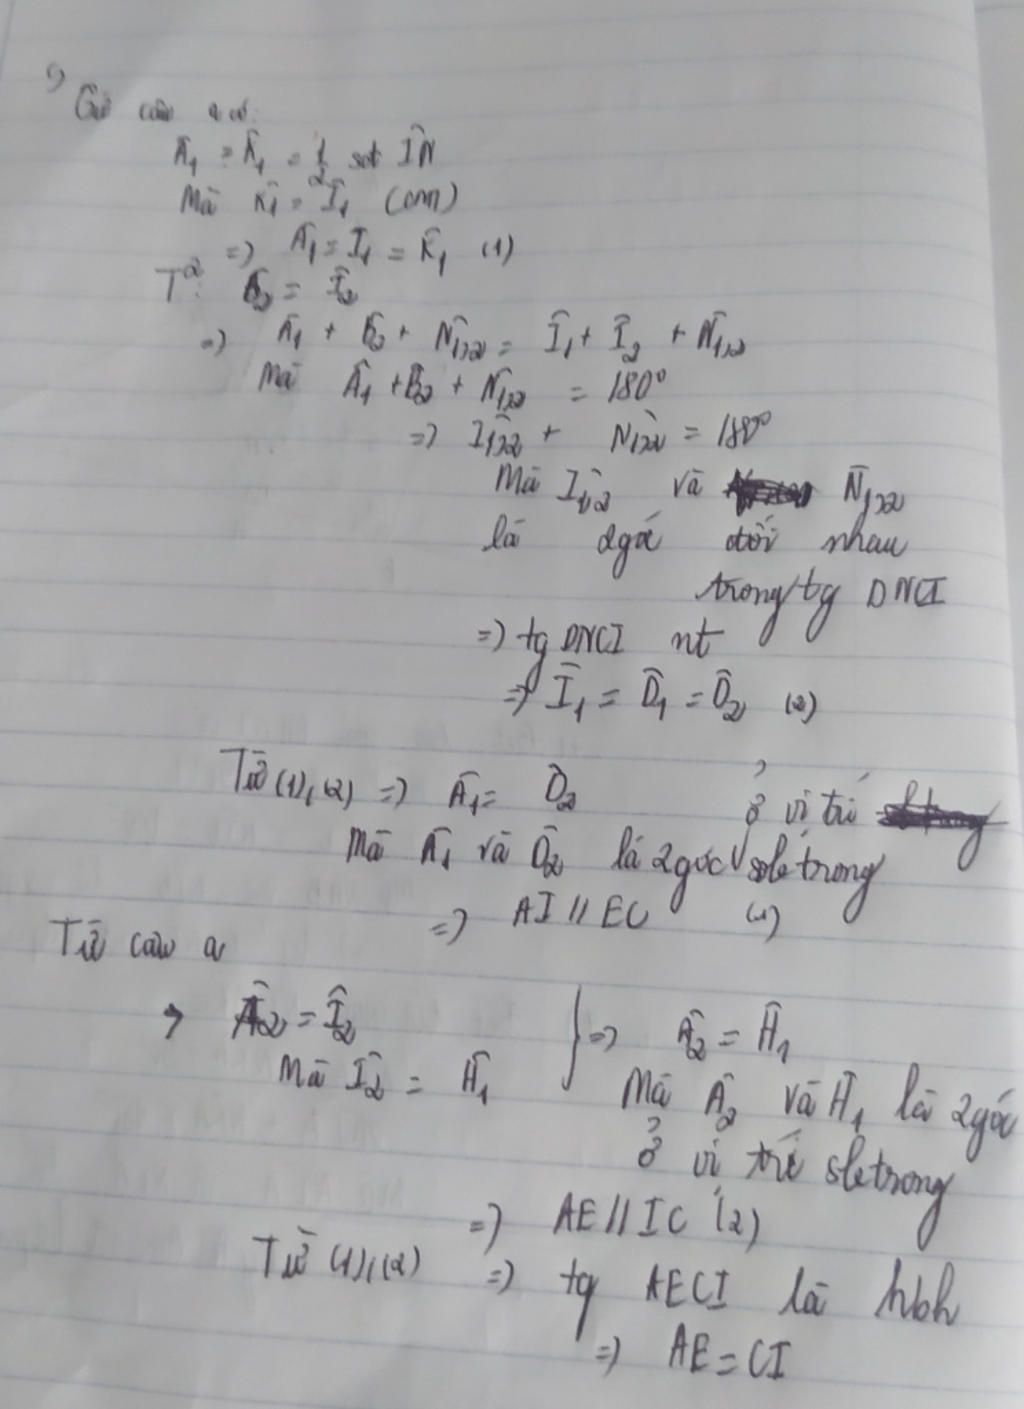 câu a có:
Â₁ = K̂₁ = 1/2 sđ IN
Mà K̂₁ = Î₁ (cmn)
=> Â₁ = Î₁ = K̂₁ (1)
T²: B̂₂ = Î₂
=> Â₁ + B̂₂ + N̂₁,₂ = Î₁ + Î₂ + N̂₁,₂
Mà Â₁ + B̂₂ + N̂₁,₂ = 180°
=> Î₁,₂ + N̂₁,₂ = 180°
Mà Î₁,₂ và N̂₁,₂
là 2góc đối nhau
trong tg DNCI
=> tg DNCI nt
=> Î₁ = D̂₁ = D̂₂ (2)
Từ (1), (2) => Â₁ = D̂₂
Mà Â₁ và D̂₂ là 2góc ở vị trí sole trong
=> AI // EC (1)
Từ câu a
Â₂ = Î₂ } => Â₂ = Ĥ₁
Mà Î₂ = Ĥ₁
Mà Â₂ và Ĥ₁ là 2góc
ở vị trí sletrong
=> AE // IC (2)
Từ (1), (2) => tg AECI là hbh
=> AE = CI